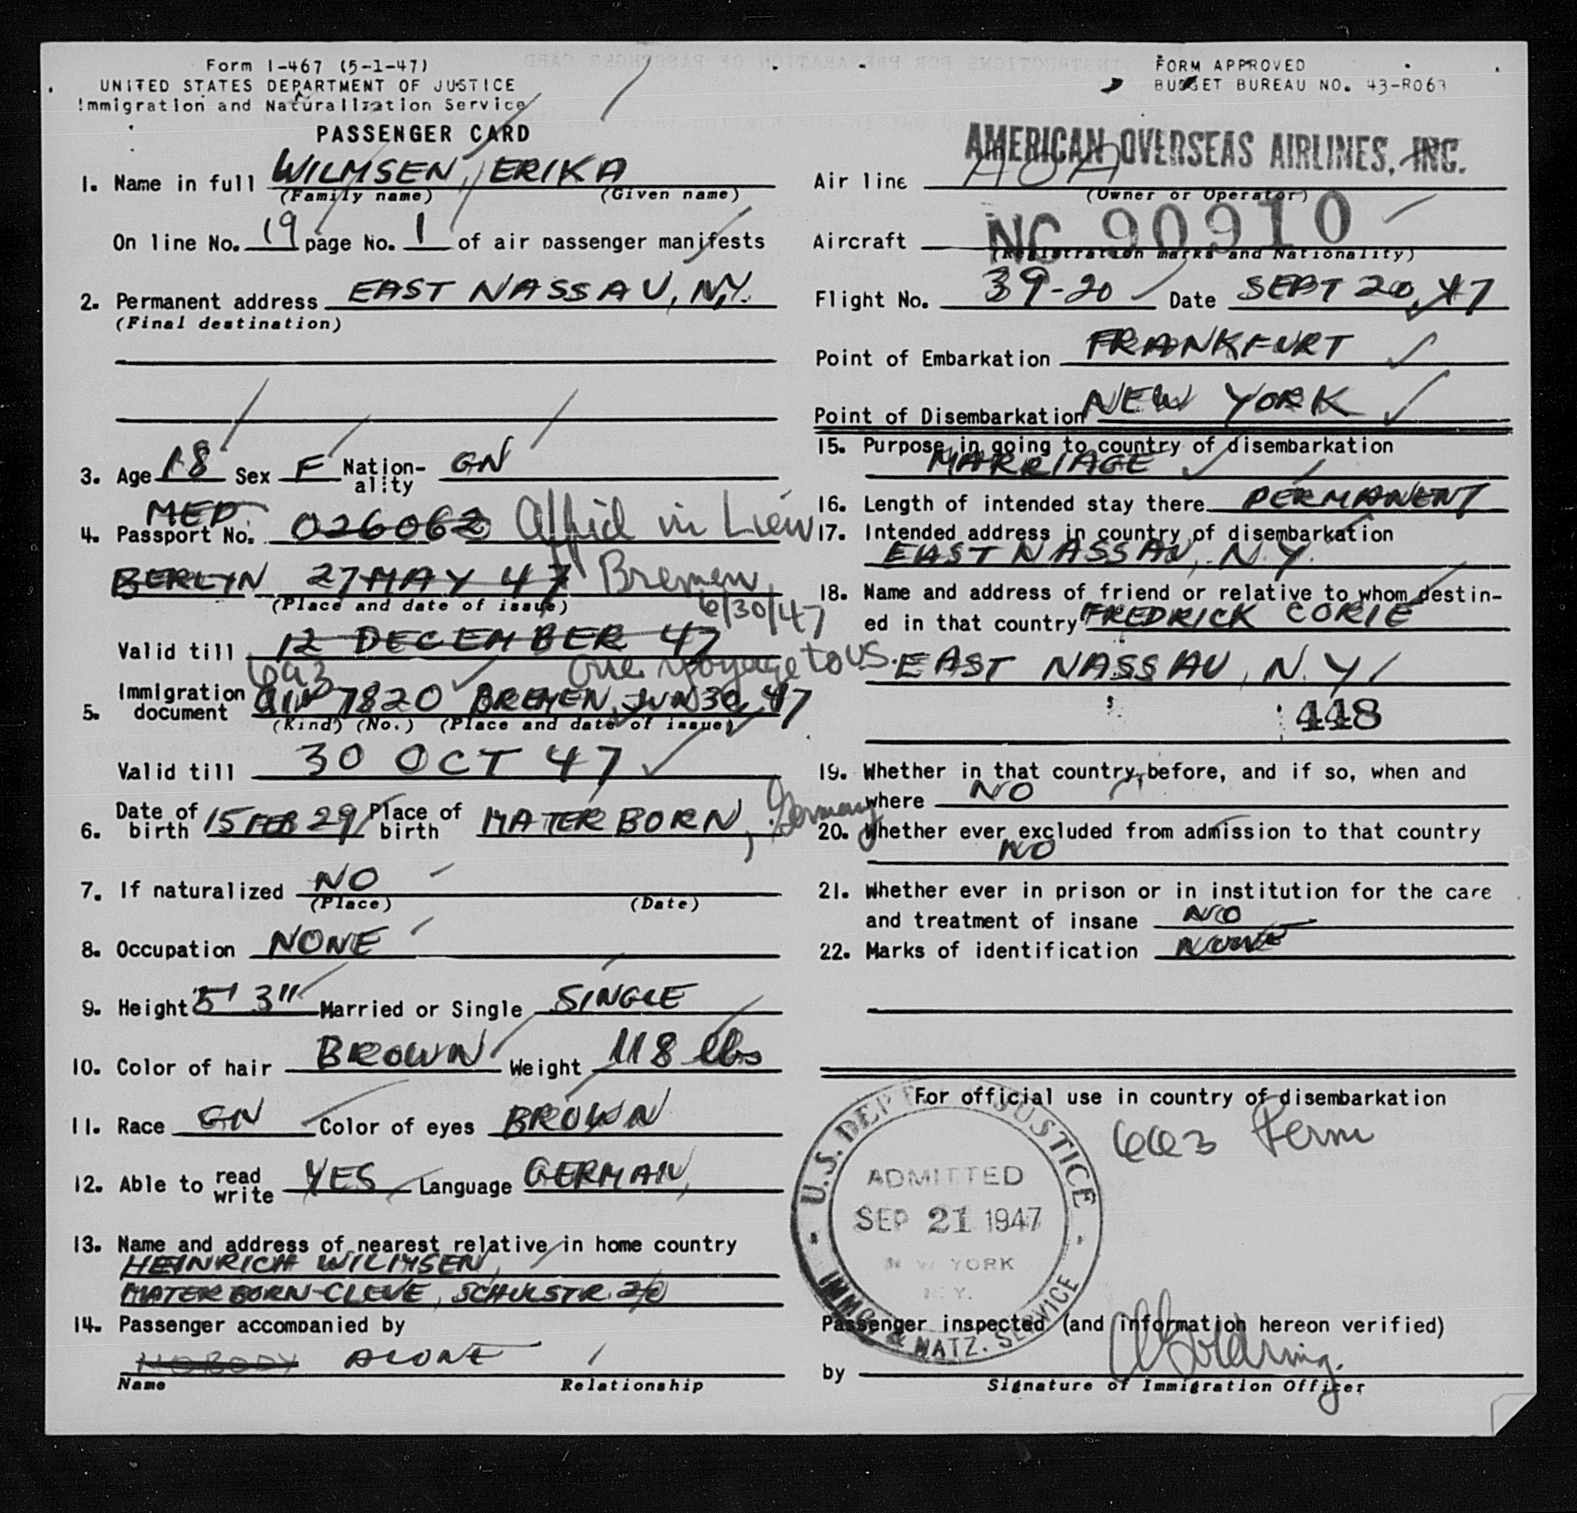 Form I-467 (5-1-47)
UNITED STATES DEPARTMENT OF JUSTICE
Immigration and Naturalization Service
PASSENGER CARD
1. Name in full WILMSEN, ERIKA
(Family name) (Given name)
On line No. 19 page No. 1 of air passenger manifests
2. Permanent address EAST NASSAU, N.Y.
(Final destination)
3. Age 18 Sex F Nationality GN
MED
4. Passport No. 026062 Affid in Lieu
BERLIN 27 MAY 47 Bremen
(Place and date of issue) 6/30/47
Valid till 12 DECEMBER 47
one voyage to US.
6a3
5. Immigration document QIV 7820 BREMEN, JUN 30, 47
(Kind) (No.) (Place and date of issue)
Valid till 30 OCT 47
6. Date of birth 15 FEB 29 Place of birth MATERBORN, Germany
7. If naturalized NO
(Place) (Date)
8. Occupation NONE
9. Height 5' 3" Married or Single SINGLE
10. Color of hair BROWN Weight 118 lbs
11. Race GN Color of eyes BROWN
12. Able to read write YES Language GERMAN,
13. Name and address of nearest relative in home country
HEINRICH WILMSEN,
MATERBORN-CLEVE, SCHULSTR. 20
14. Passenger accompanied by
NOBODY ALONE
Name Relationship
FORM APPROVED
BUDGET BUREAU NO. 43-R063
AMERICAN OVERSEAS AIRLINES, INC.
Air line AOA
(Owner or Operator)
Aircraft NC 90910
(Registration marks and Nationality)
Flight No. 39-20 Date SEPT 20, 47
Point of Embarkation FRANKFURT
Point of Disembarkation NEW YORK
15. Purpose in going to country of disembarkation
MARRIAGE
16. Length of intended stay there PERMANENT
17. Intended address in country of disembarkation
EAST NASSAU, N.Y.
18. Name and address of friend or relative to whom destin-
ed in that country FREDRICK CORIE
EAST NASSAU, N.Y.
448
19. Whether in that country before, and if so, when and
where NO
20. Whether ever excluded from admission to that country
NO
21. Whether ever in prison or in institution for the care
and treatment of insane NO
22. Marks of identification NONE
For official use in country of disembarkation
6a3 Perm
U.S. DEPT. JUSTICE
ADMITTED
SEP 21 1947
NEW YORK
N.Y.
IMMG. & NATZ. SERVICE
Passenger inspected (and information hereon verified)
by
Signature of Immigration Officer